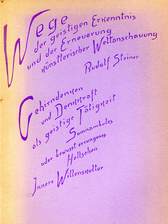 Wege
der geistigen Erkenntnis
und der Erneuerung
künstlerischer Weltanschauung
Rudolf Steiner
Gehirndenken
und Denkkraft
als geistige Tätigkeit
Somnambules
oder bewusst errungenes
Hellsehen
Innere Willenskultur